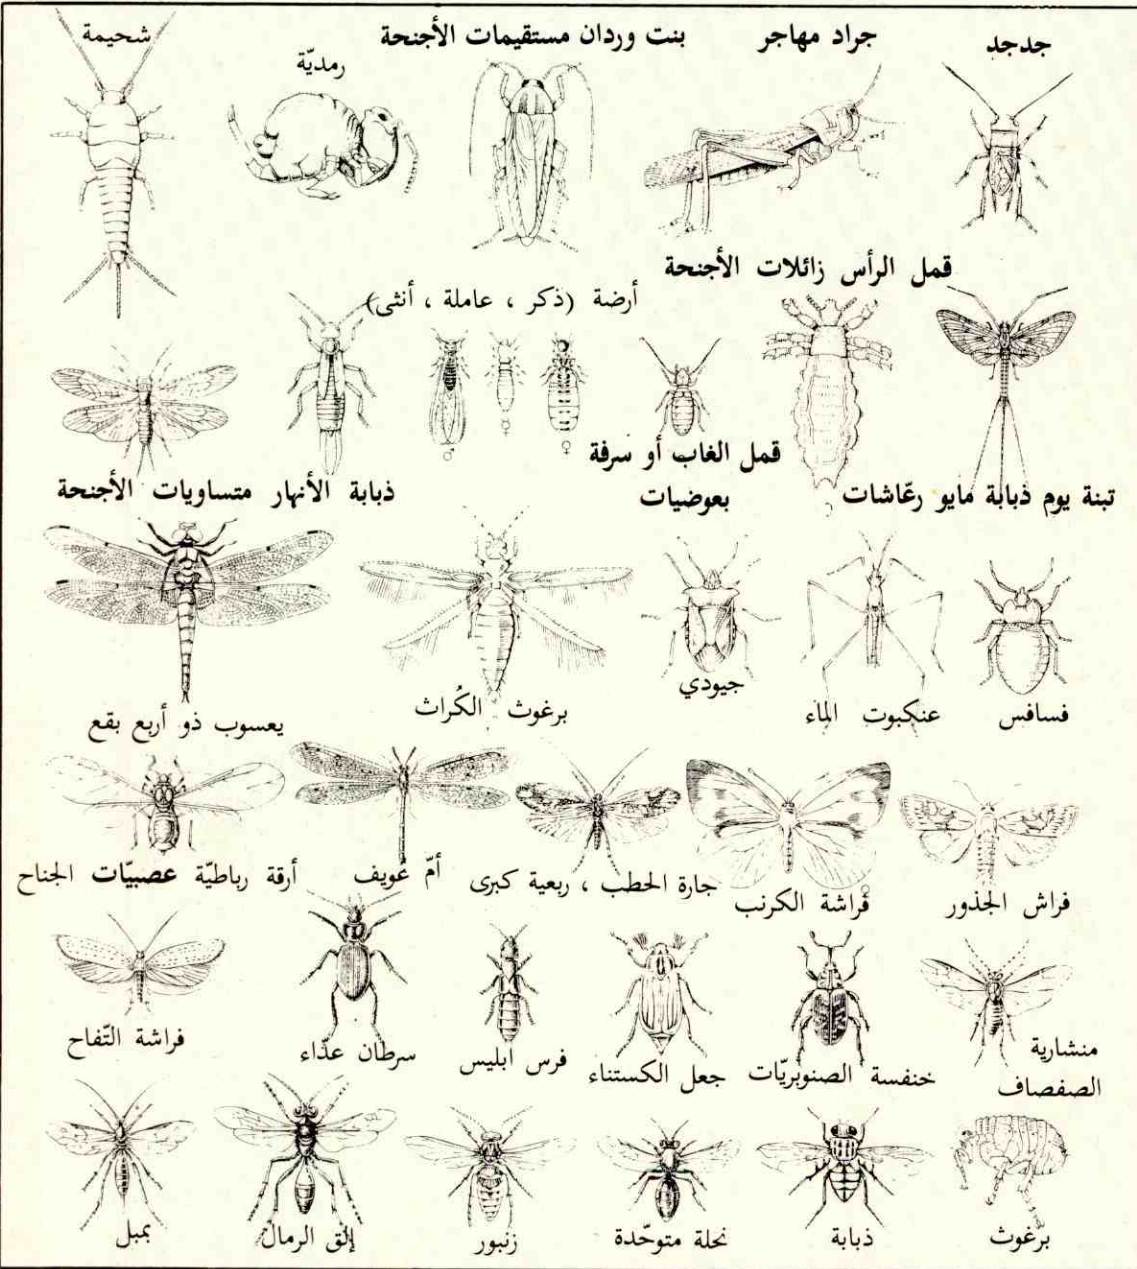 جدجد
جراد مهاجر
بنت وردان مستقيمات الأجنحة
شحيمة
رمديّة
قمل الرأس زائلات الأجنحة
أرضة (ذكر ، عاملة ، أنثى)
♀
☿
♂
قمل الغاب أو سرفة
بعوضيات
تبنة يوم ذبابة مايو رعّاشات
ذبابة الأنهار متساويات الأجنحة
فسافس
عنكبوت الماء
جيودي
برغوث الكُراث
يعسوب ذو أربع بقع
فراش الجذور
فراشة الكرنب
♀
جارة الحطب ، ربعية كبرى
أمّ عُويف
أرقة رباطيّة عصبيّات الجناح
منشارية
الصفصاف
خنفسة الصنوبريّات
جعل الكستناء
فرس ابليس
سرطان عدّاء
فراشة التّفاح
برغوث
ذبابة
نحلة متوحّدة
زنبور
إلق الرمال
بمبل